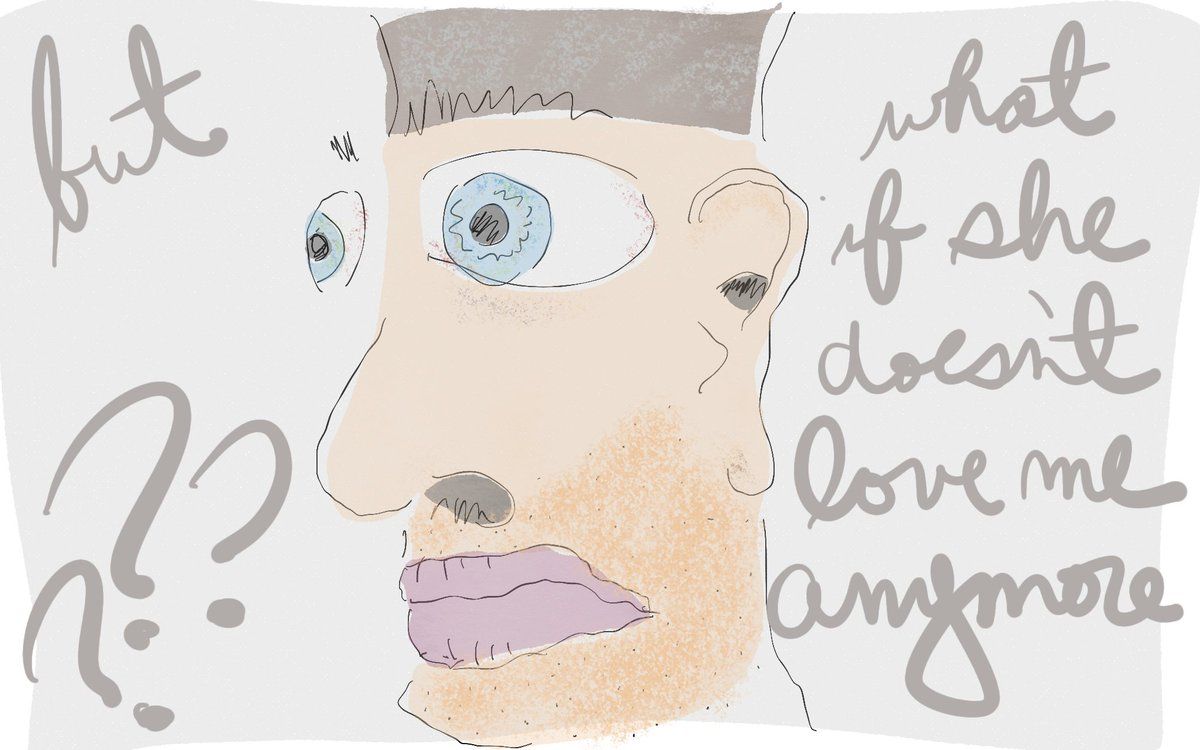 but
what
if she
doesn't
love me
anymore
???